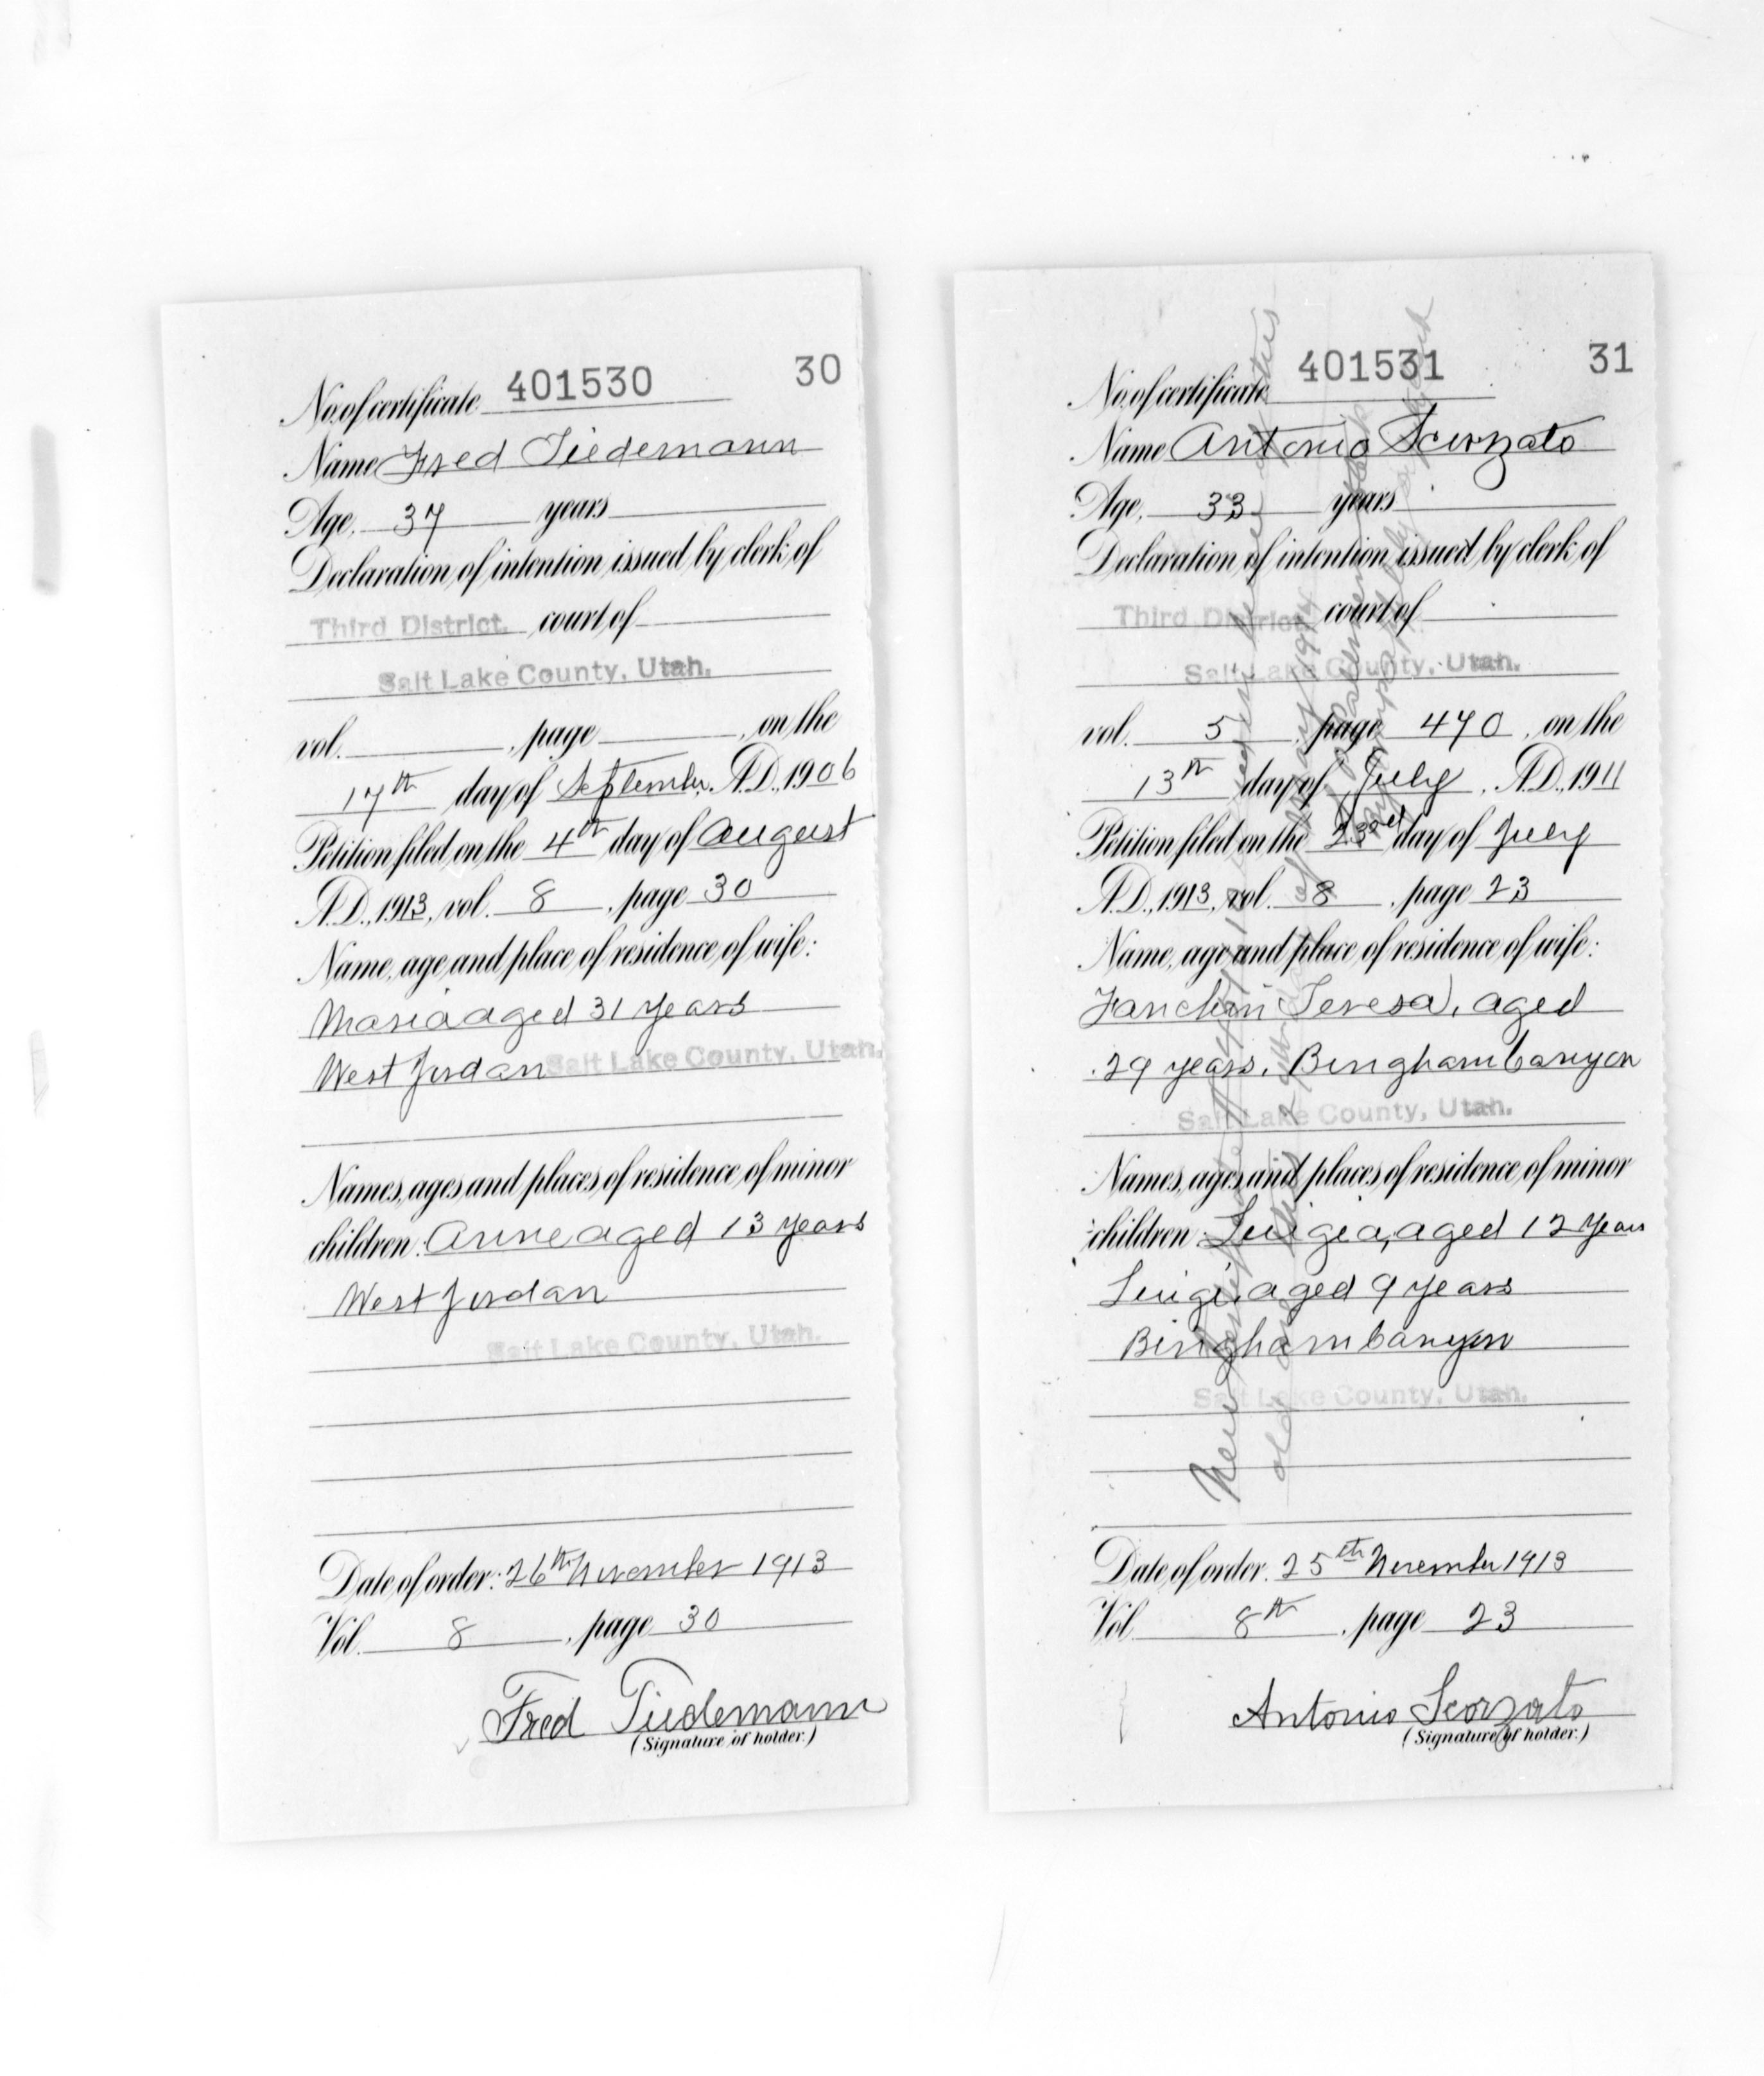 No. of certificate 401530 30
Name Fred Tiedemann
Age, 37 years
Declaration of intention issued by clerk of
Third District. court of
Salt Lake County, Utah.
vol. , page , on the
17th day of September, A.D., 1906
Petition filed on the 4th day of August
A.D., 1913, vol. 8, page 30
Name, age and place of residence of wife:
Maria aged 31 years
West Jordan Salt Lake County, Utah.
Names, ages and places of residence of minor
children: Anne aged 13 years
West Jordan
Salt Lake County, Utah.
Date of order: 26th November 1913
Vol. 8, page 30
Fred Tiedemann
(Signature of holder.)
No. of certificate 401531 31
Name Antonio Scorzato
Age, 33 years
Declaration of intention issued by clerk of
Third District. court of
Salt Lake County, Utah.
vol. 5 page 470, on the
13th day of July, A.D., 1911
Petition filed on the 23rd day of July
A.D., 1913, vol. 8, page 23
Name, age and place of residence of wife:
Teresa, aged
29 years. Bingham Canyon
Salt Lake County, Utah.
Names, ages and places of residence of minor
children: Luigia, aged 12 years
Luigi, aged 9 years
Bingham Canyon
Salt Lake County, Utah.
Date of order. 25th November 1913
Vol. 8th, page 23
Antonio Scorzato
(Signature of holder.)
New
old